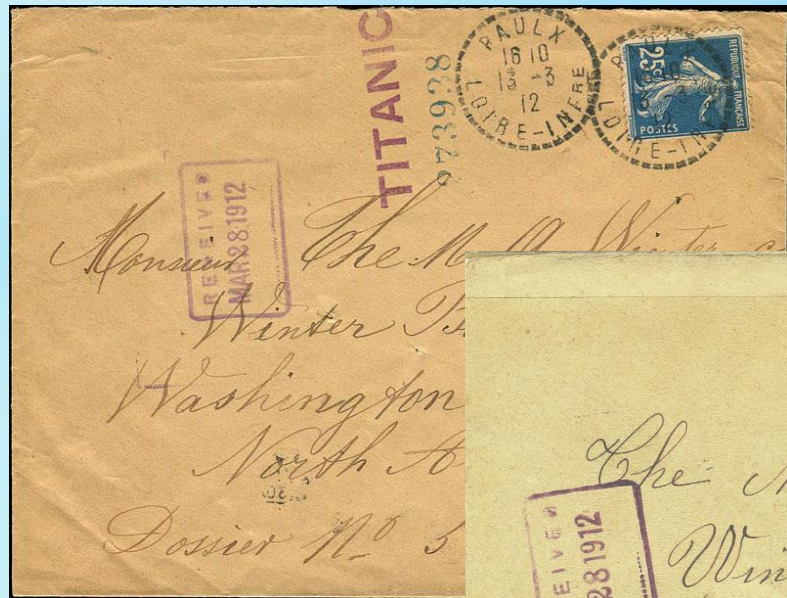 TITANIC
273938
PAULX
16 10
13 -3
12
LOIRE-INFRE
25c
REPUBLIQUE FRANCAISE
POSTES
RECEIVED
MAR 28 1912
Monsieur The M. A. Winter
Winter
Washington
North A
Dossier No 5
The
Win
EIVED
281912